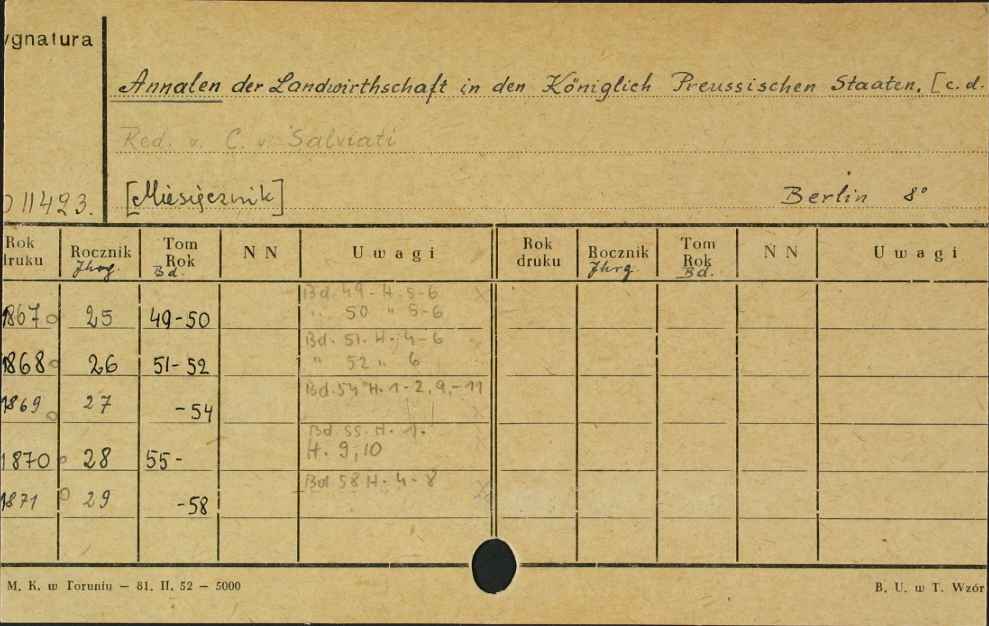 ygnatura
Annalen der Landwirthschaft in den Königlich Preussischen Staaten. [c.d.
Red. v. C. v. Salviati
11423. [Miesięcznik] Berlin 8°
Rok druku Rocznik Jhrg. Tom Rok Bd. N N Uwagi Rok druku Rocznik Jhrg. Tom Rok Bd. N N Uwagi
1867 25 49-50 Bd. 49-H. 5-6
" 50 " 5-6
1868 26 51-52 Bd. 51-H. 4-6
" 52 " 6
1869 27 -54 Bd. 54 H. 1-2, 9,-11
1870 28 55- Bd. 55. H. 1.
H. 9, 10
1871 29 -58 Bd 58 H. 4-8
M. K. w Toruniu — 81. II. 52 — 5000 B. U. w T. Wzór